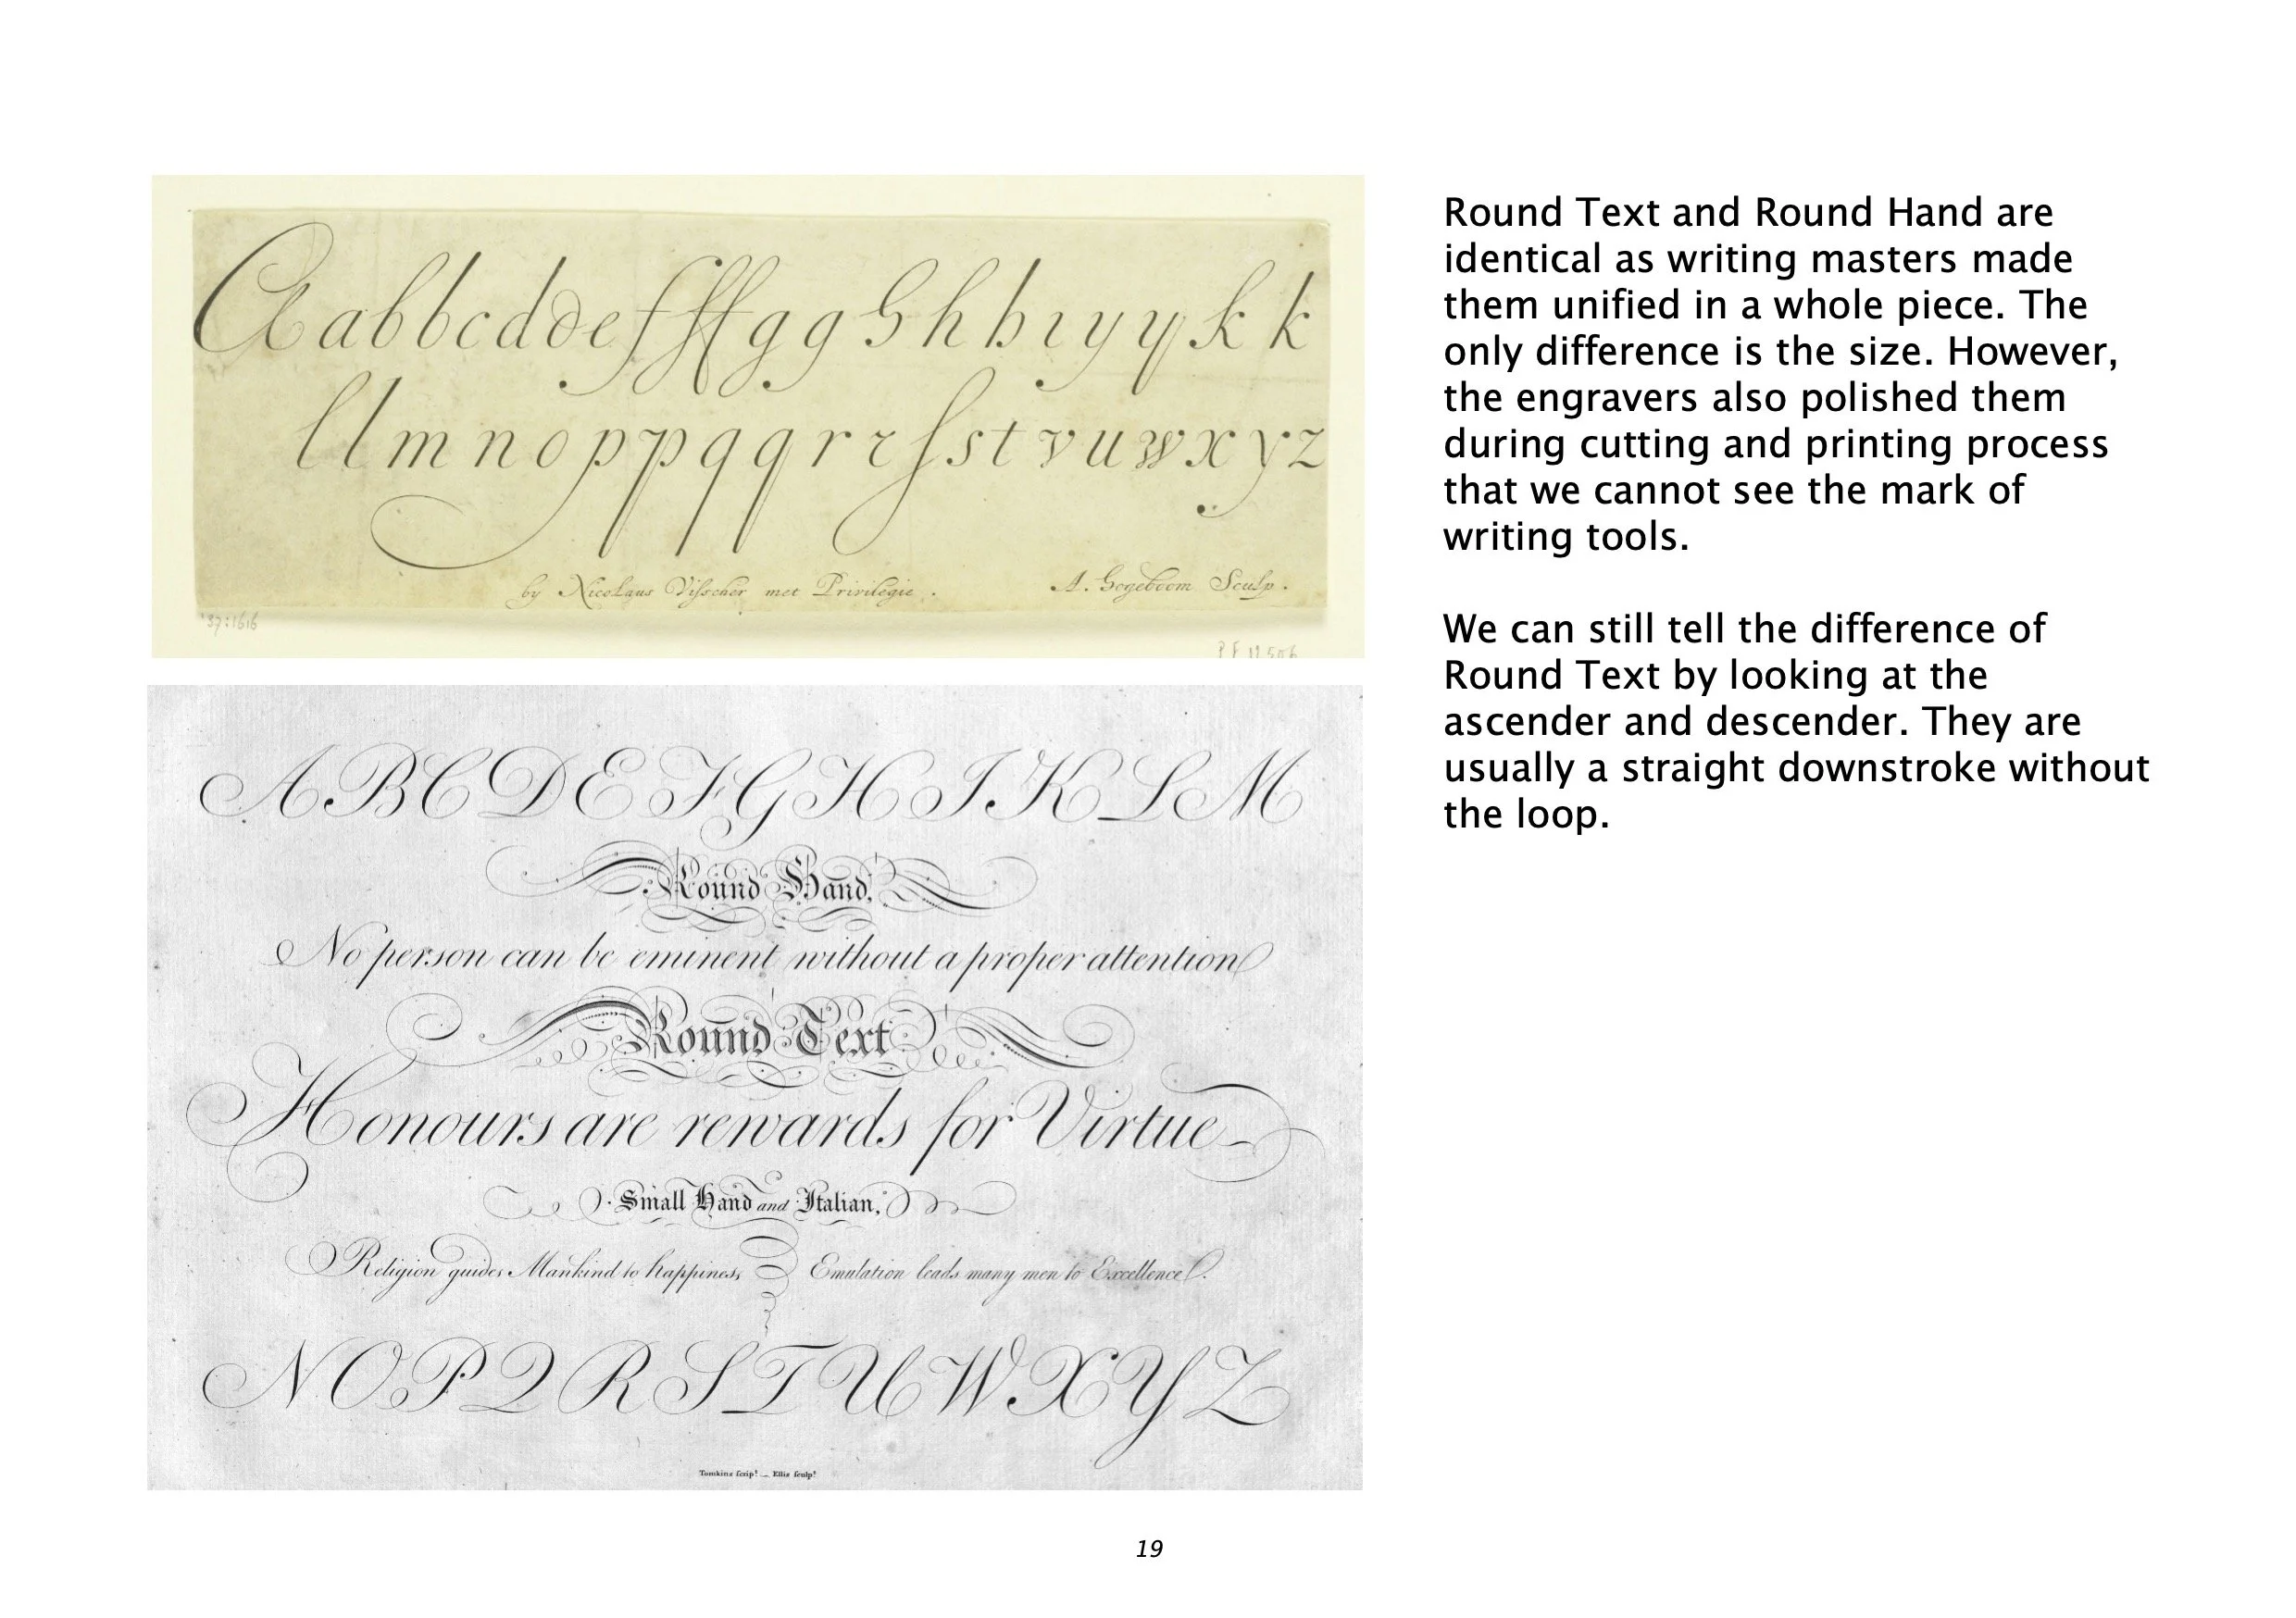 A a b b c d d e f ff g g g h h i y y k k
l l m n o p p q q r r ſ s t v u w x y z
by Nicolaus Visscher met Privilegie.
A. Hogeboom Sculp.
'37:1616
A B C D E F G H I K L M
Round Hand,
No person can be eminent without a proper attention
Round Text
Honours are rewards for Virtue
Small Hand and Italian,
Religion guides Mankind to happiness,
Emulation leads many men to Excellence.
N O P Q R S T U W X Y Z
Tomkins scrip! — Ellis sculp!
Round Text and Round Hand are
identical as writing masters made
them unified in a whole piece. The
only difference is the size. However,
the engravers also polished them
during cutting and printing process
that we cannot see the mark of
writing tools.
We can still tell the difference of
Round Text by looking at the
ascender and descender. They are
usually a straight downstroke without
the loop.
19